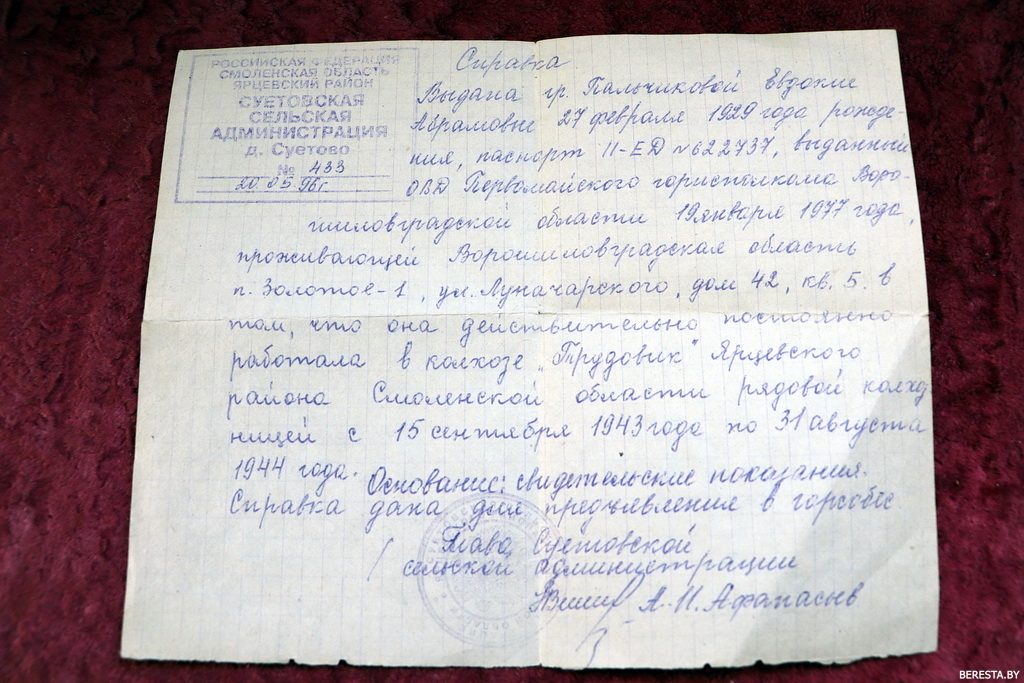 РОССИЙСКАЯ ФЕДЕРАЦИЯ
СМОЛЕНСКАЯ ОБЛАСТЬ
ЯРЦЕВСКИЙ РАЙОН
СУЕТОВСКАЯ
СЕЛЬСКАЯ
АДМИНИСТРАЦИЯ
д. Суетово
№ 433
20.05.96г.
Справка
Выдана гр. Пальчиковой Евдокие
Абрамовне 27 февраля 1929 года рожде-
ния, паспорт II-ЕД № 622737, выданный
ОВД Первомайского горисполкома Воро-
шиловградской области 19 января 1977 года,
проживающей Ворошиловградская область
п. Золотое-1, ул. Луначарского, дом 42, кв. 5. в
том, что она действительно постоянно
работала в колхозе „Трудовик" Ярцевского
района Смоленской области рядовой колхо
ницей с 15 сентября 1943 года по 31 августа
1944 года. Основание: свидетельские показания.
Справка дана для предъевления в горсобес
Глава Суетовской
сельской администрации
А.И. Афанасьев
BERESTA.BY